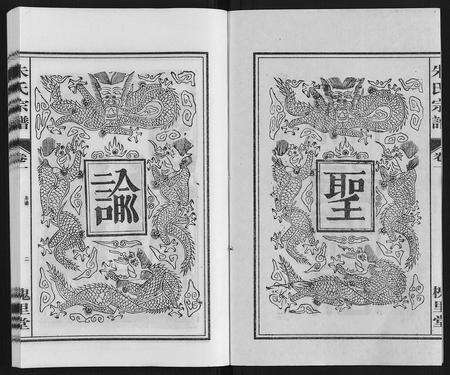 聖
朱氏宗譜
卷
槐里堂
諭
朱氏宗譜
卷一
二
槐里堂